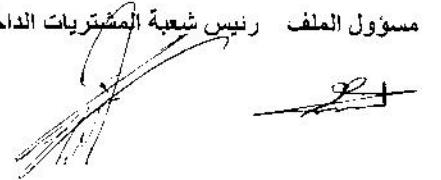 مسؤول الملف رئيس شعبة المشتريات